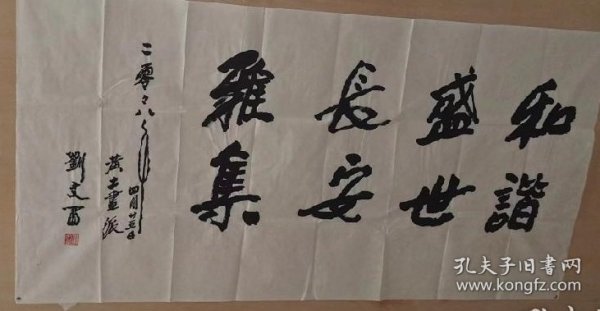 和諧
盛世
長安
雅集
二零零八年
四月廿五日
黄土畫派
劉文西
孔夫子旧书网
www.kongfz.com